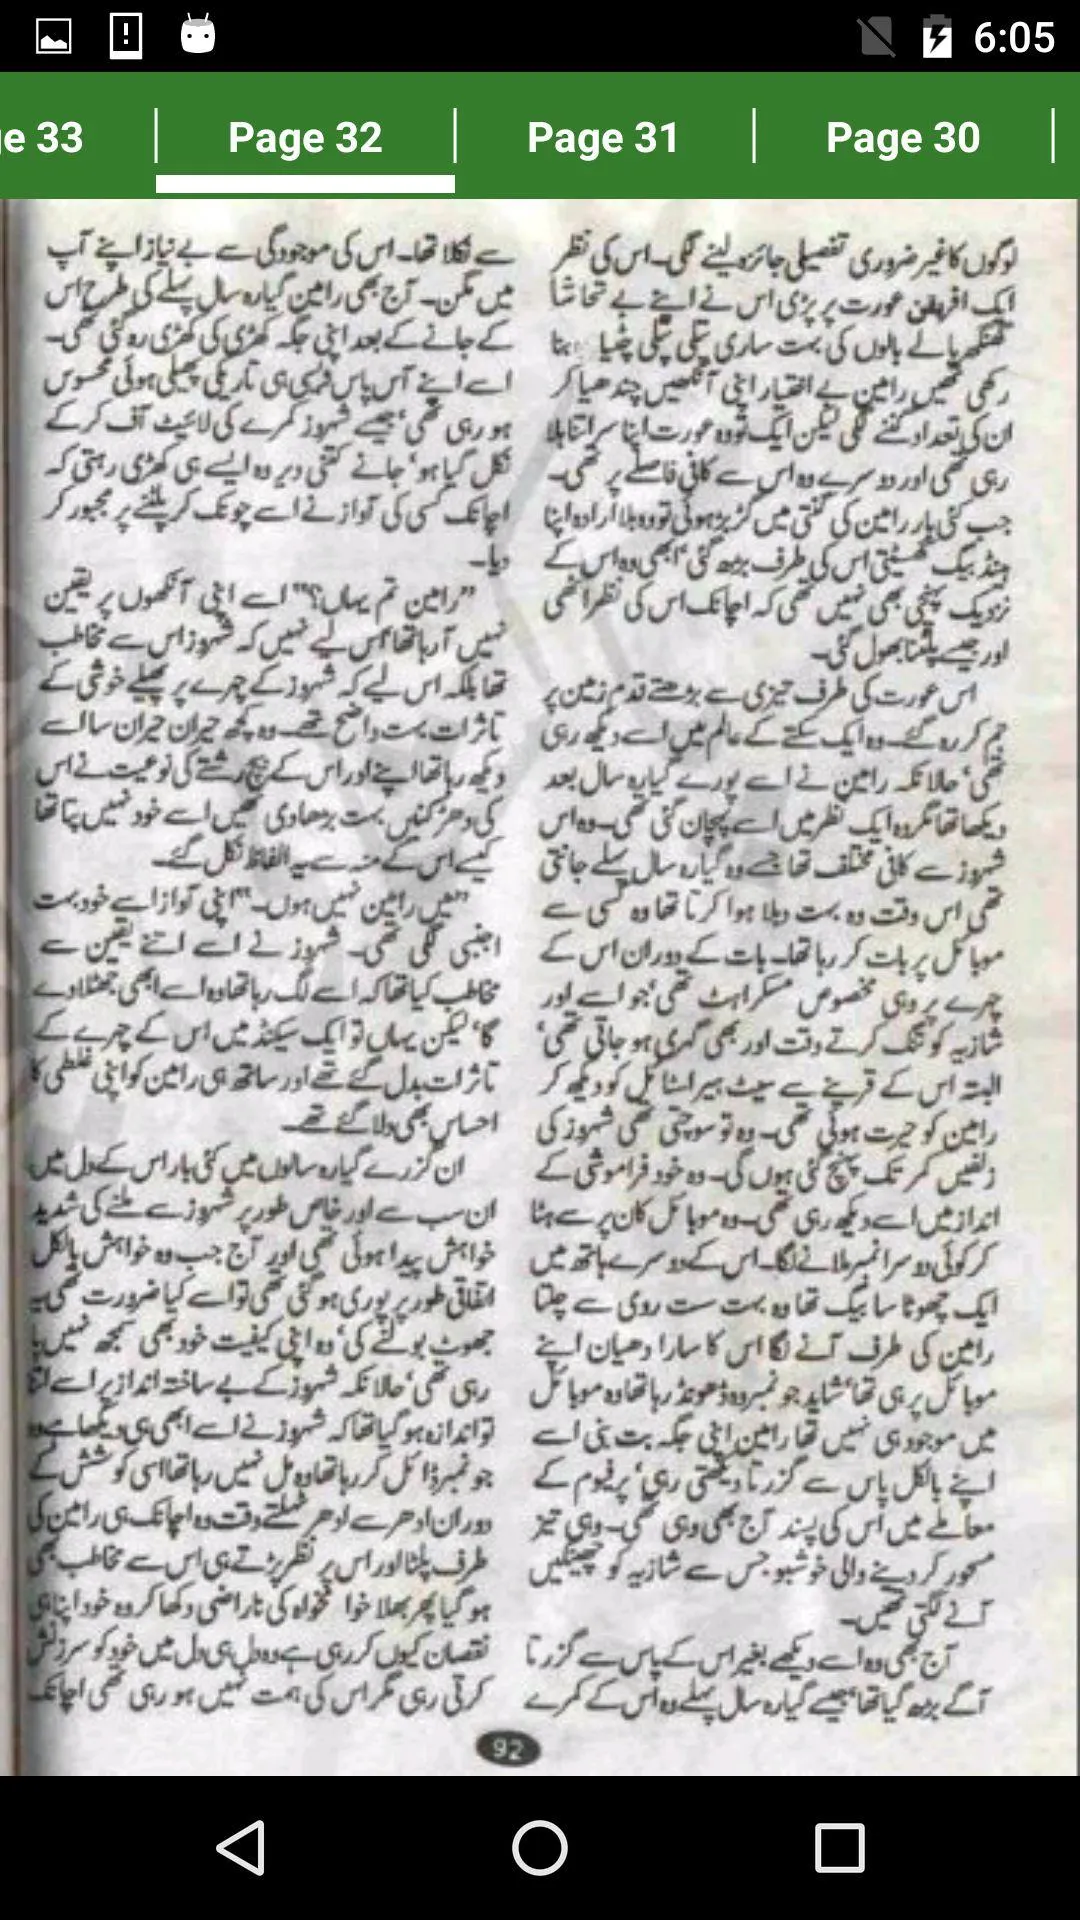 6:05
ge 33
Page 32
Page 31
Page 30
لوگوں کا غیر ضروری تفصیلی جائزہ لینے لگی۔ اس کی نظر
ایک افریقن عورت پر پڑی اس نے اپنے بے تحاشا
گھنگھریالے بالوں کی بہت ساری پتلی پتلی چٹیا بنا
رکھی تھیں رامین بے اختیار اپنی آنکھیں چندھیا کر
ان کی تعداد گننے لگی لیکن ایک تو وہ عورت اپنا سر اتنا ہلا
رہی تھی اور دوسرے وہ اس سے کافی فاصلے پر تھی۔
جب کئی بار رامین کی گنتی میں گڑبڑ ہوئی تو وہ بلا ارادہ اپنا
ہینڈ بیگ گھسیٹتی اس کی طرف بڑھ گئی‘ ابھی وہ اس کے
نزدیک پہنچی بھی نہیں تھی کہ اچانک اس کی نظر اٹھی
اور جیسے پلٹنا بھول گئی۔
اس عورت کی طرف تیزی سے بڑھتے قدم زمین پر
جم کر رہ گئے۔ وہ ایک سکتے کے عالم میں اسے دیکھ رہی
تھی‘ حالانکہ رامین نے اسے پورے گیارہ سال بعد
دیکھا تھا مگر وہ ایک نظر میں اسے پہچان گئی تھی۔ وہ اس
شہروز سے کافی مختلف تھا جسے وہ گیارہ سال پہلے جانتی
تھی اس وقت وہ بہت دبلا ہوا کرتا تھا وہ کسی سے
موبائل پر بات کر رہا تھا۔ بات کے دوران اس کے
چہرے پر وہی مخصوص مسکراہٹ تھی‘ جو اسے اور
شازیہ کو تنگ کرتے وقت اور بھی گہری ہو جاتی تھی‘
البتہ اس کے قرینے سے سیٹ ہیر اسٹائل کو دیکھ کر
رامین کو حیرت ہوئی تھی۔ وہ تو سوچتی تھی شہروز کی
زلفیں کمر تک پہنچ گئی ہوں گی۔ وہ خود فراموشی کے
انداز میں اسے دیکھ رہی تھی۔ وہ موبائل کان پر سے ہٹا
کر کوئی دوسرا نمبر ملانے لگا۔ اس کے دوسرے ہاتھ میں
ایک چھوٹا سا بیگ تھا وہ بہت سست روی سے چلتا
رامین کی طرف آنے لگا اس کا سارا دھیان اپنے
موبائل پر ہی تھا‘ شاید جو نمبر وہ ڈھونڈ رہا تھا وہ موبائل
میں موجود ہی نہیں تھا رامین اپنی جگہ بت بنی اسے
اپنے بالکل پاس سے گزرتا دیکھتی رہی‘ پرفیوم کے
معاملے میں اس کی پسند آج بھی وہی تھی۔ وہی تیز
مسحور کر دینے والی خوشبو جس سے شازیہ کو چھینکیں
آنے لگتی تھیں۔
آج بھی وہ اسے دیکھے بغیر اس کے پاس سے گزرتا
آگے بڑھ گیا تھا‘ جیسے گیارہ سال پہلے وہ اس کے کمرے
سے نکلا تھا۔ اس کی موجودگی سے بے نیاز اپنے آپ
میں مگن۔ آج بھی رامین گیارہ سال پہلے کی طرح اس
کے جانے کے بعد اپنی جگہ کھڑی کی کھڑی رہ گئی تھی۔
اسے اپنے آس پاس ہی تاریکی پھیلی ہوئی محسوس
ہو رہی تھی‘ جیسے شہروز کمرے کی لائیٹ آف کر کے
نکل گیا ہو‘ جانے کتنی دیر وہ ایسے ہی کھڑی رہتی کہ
اچانک کسی کی آواز نے اسے چونک کر پلٹنے پر مجبور کر
دیا۔
”رامین تم یہاں؟“ اسے اپنی آنکھوں پر یقین
نہیں آ رہا تھا اس لیے نہیں کہ شہروز اس سے مخاطب
تھا بلکہ اس لیے کہ شہروز کے چہرے پر پھیلے خوشی کے
تاثرات بہت واضح تھے۔ وہ کچھ حیران حیران سا اسے
دیکھ رہا تھا اپنے اور اس کے بیچ رشتے کی نوعیت نے اس
کی دھڑکنیں بہت بڑھا دی تھیں اسے خود نہیں پتا تھا
کیسے اس کے منہ سے یہ الفاظ نکل گئے۔
”میں رامین نہیں ہوں۔“ اپنی آواز اسے خود بہت
اجنبی لگی تھی۔ شہروز نے اسے اتنے یقین سے
مخاطب کیا تھا کہ اسے لگ رہا تھا وہ اسے ابھی جھٹلا دے
گا‘ لیکن یہاں تو ایک سیکنڈ میں اس کے چہرے کے
تاثرات بدل گئے تھے اور ساتھ ہی رامین کو اپنی غلطی کا
احساس بھی دلا گئے تھے۔
ان گزرے گیارہ سالوں میں کئی بار اس کے دل میں
ان سب سے اور خاص طور پر شہروز سے ملنے کی شدید
خواہش پیدا ہوئی تھی اور آج جب وہ خواہش بالکل
اتفاقی طور پر پوری ہو گئی تھی تو اسے کیا ضرورت تھی یہ
جھوٹ بولنے کی‘ وہ اپنی کیفیت خود بھی سمجھ نہیں پا
رہی تھی‘ حالانکہ شہروز کے بے ساختہ انداز پر اسے اتنا
تو اندازہ ہو گیا تھا کہ شہروز نے اسے ابھی ہی دیکھا ہے وہ
جو نمبر ڈائل کر رہا تھا وہ مل نہیں رہا تھا اسی کوشش کے
دوران ادھر سے ادھر ٹہلتے وقت وہ اچانک ہی رامین کی
طرف پلٹا اور اس پر نظر پڑتے ہی اس سے مخاطب بھی
ہو گیا پھر بھلا خوا مخواہ کی ناراضی دکھا کر وہ خود اپنا ہی
نقصان کیوں کر رہی ہے وہ دل ہی دل میں خود کو سرزنش
کرتی رہی مگر اس کی ہمت نہیں ہو رہی تھی اچانک
92